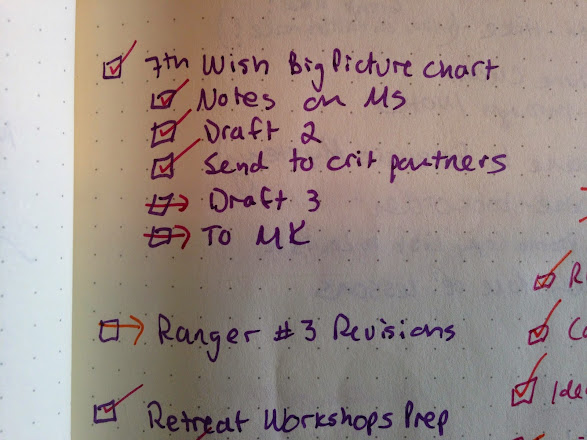 7th Wish Big Picture chart
Notes on MS
Draft 2
Send to crit partners
Draft 3
To MK
Ranger #3 Revisions
Retreat Workshops Prep